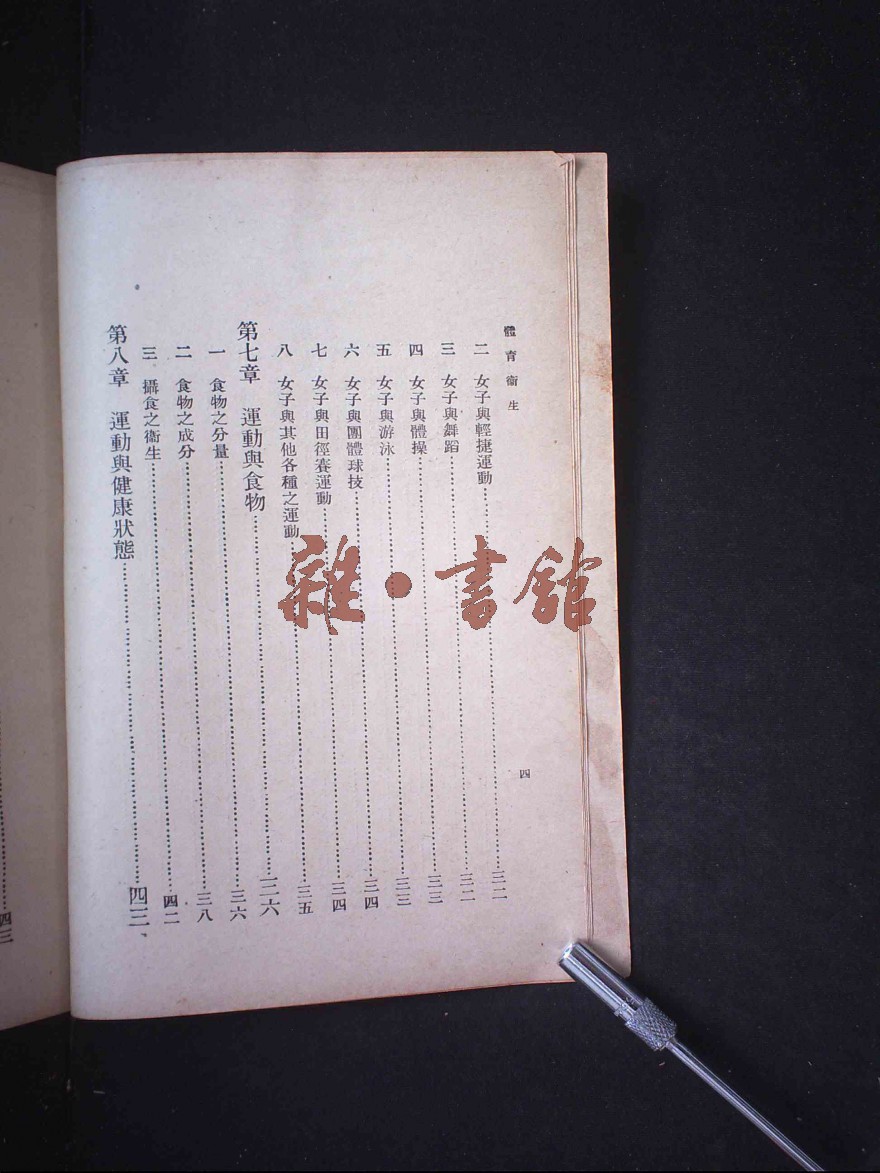 體育衞生
四
二 女子與輕捷運動……三二
三 女子與舞蹈……三二
四 女子與體操……三三
五 女子與游泳……三三
六 女子與團體球技……三四
七 女子與田徑賽運動……三四
八 女子與其他各種之運動……三五
第七章 運動與食物……三六
一 食物之分量……三六
二 食物之成分……三八
三 攝食之衞生……四二
第八章 運動與健康狀態……四三
四三
雜·書館